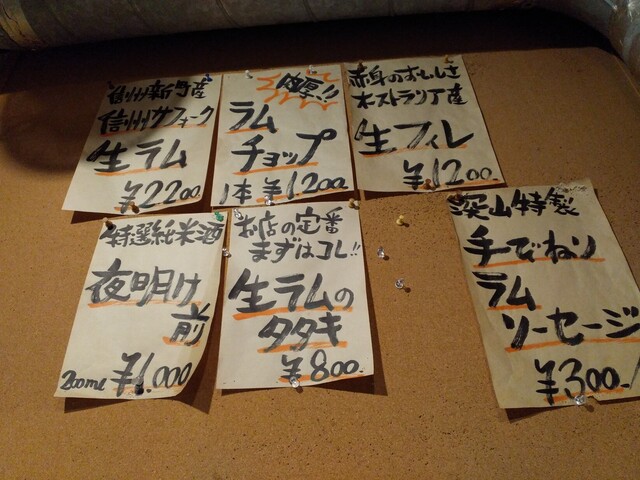 信州新町産
信州サフォーク
生ラム
¥2200
肉厚!!
ラム
チョップ
1本¥1200
赤身のおいしさ
オーストラリア産
生フィレ
¥1200.
特選純米酒
夜明け
前
200ml ¥1,000
お店の定番
まずはコレ!!
生ラムの
タタキ
¥800.
深山特製
手でねり
ラム
ソーセージ
¥300.